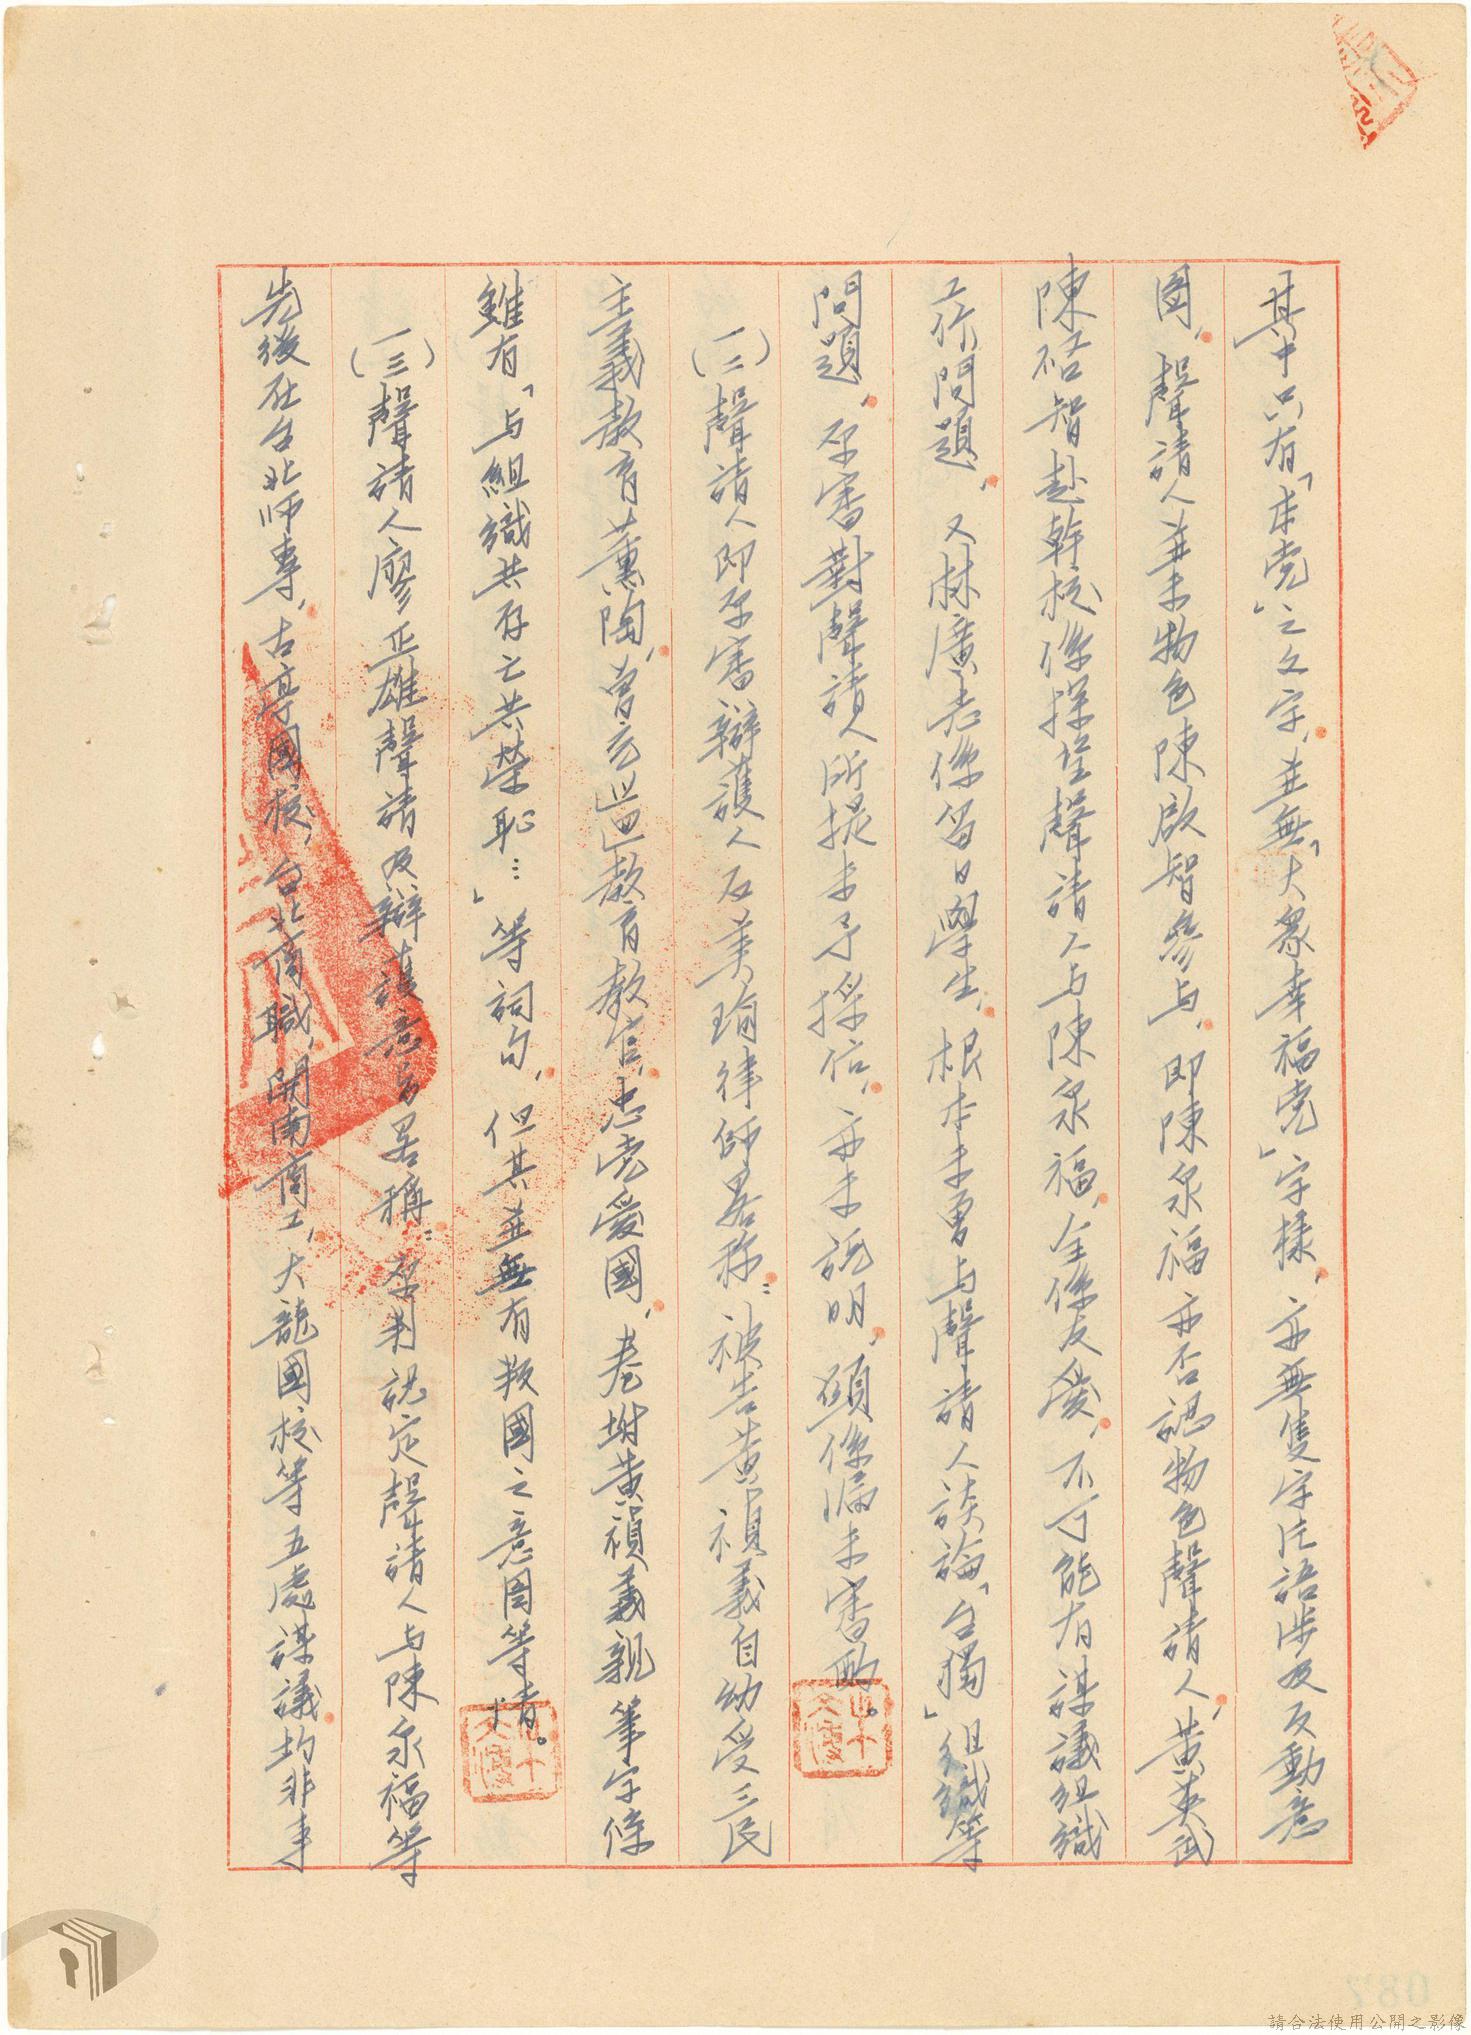 其中只有「本党」之文字，並無「大眾幸福党」字樣，亦無隻字片語涉及反動意
圖，聲請人並未物色陳啟智參与，即陳泉福亦否認物色聲請人，黃英武
陳啟智赴幹校係探望聲請人与陳泉福，全係友愛，不可能有謀議組織
工作問題，又林廣志係留日學生，根本未曾与聲請人談論「台獨」組織等
問題，原審對聲請人所提未予採信，亦未說明，顯係漏未審酌。
(二)聲請人即原審辯護人石美瑜律師畧称：被告黃禎義自幼受三民
主義教育薰陶，曾充盡教育教官，忠党愛國，卷附黃禎義親筆字條
雖有「与組織共存亡共榮恥…」等詞句，但其並無有叛國之意圖等情。
(三)聲請人廖正雄聲請及辯護意旨畧稱：原判認定聲請人与陳泉福等
先後在台北師專，古亭國校，台北商職，開南商工，大龍國校等五處謀議均非事
請合法使用公開之影像